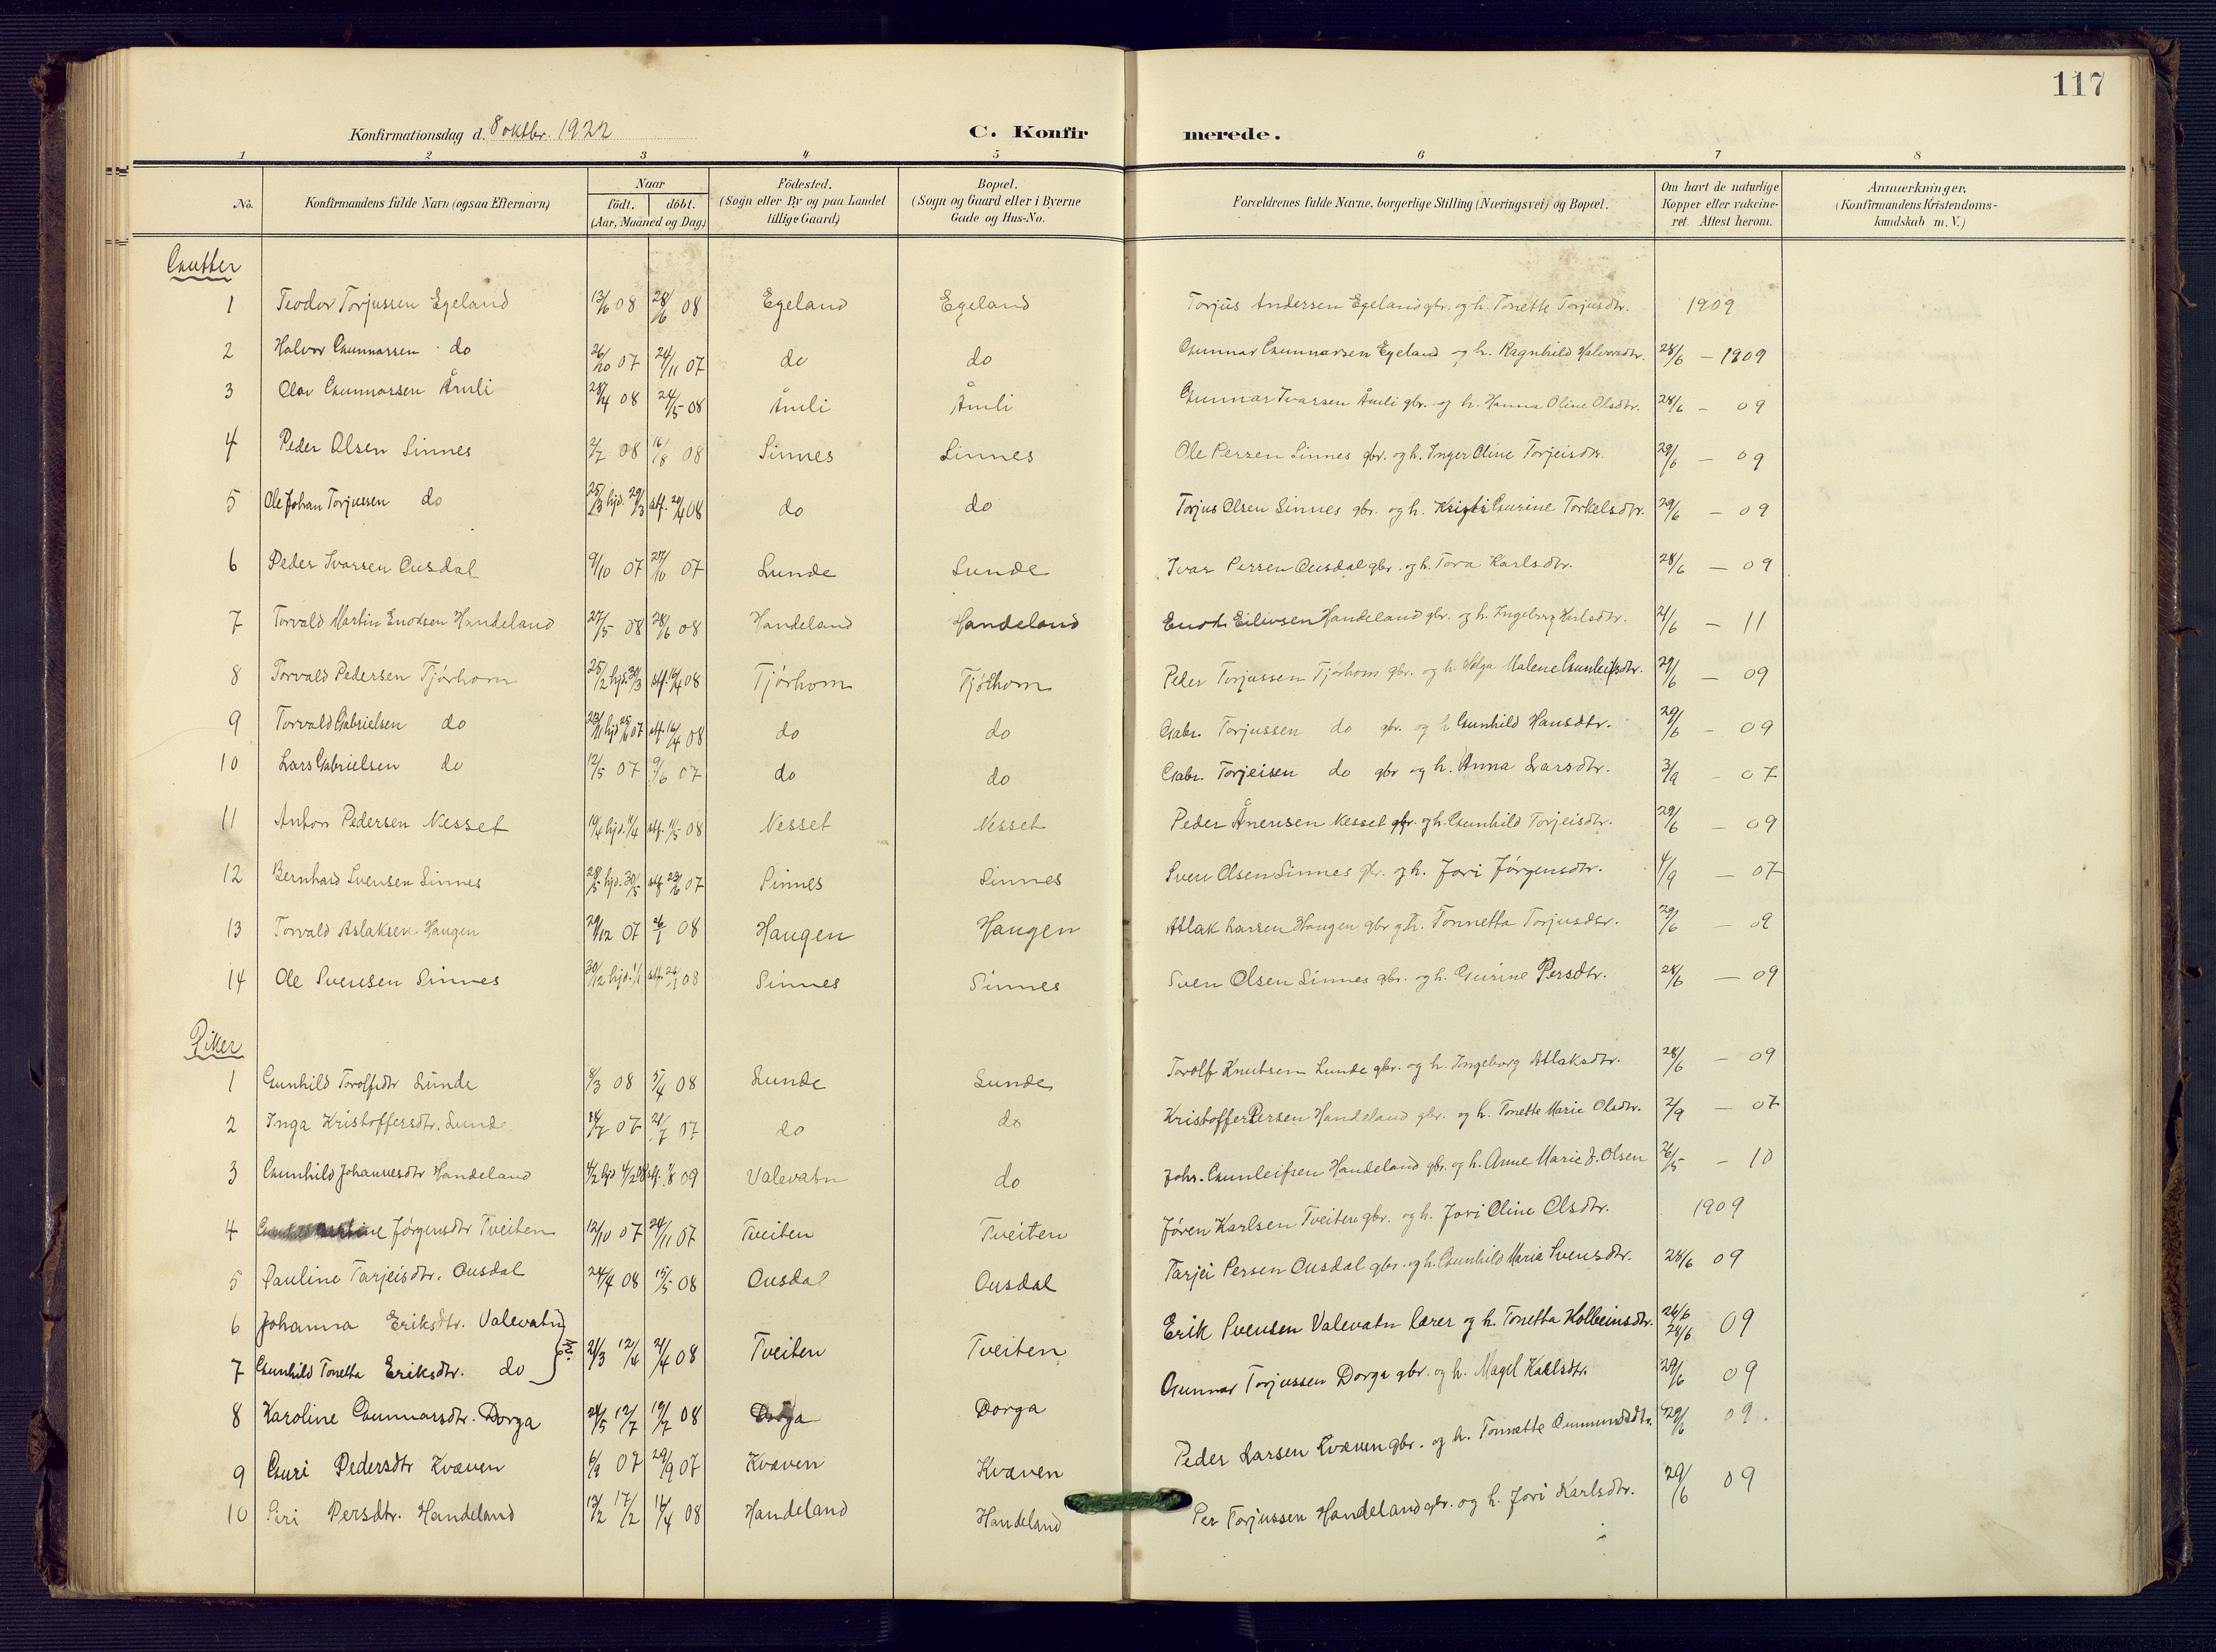 117
Konfirmationsdag d. 8 oktbr. 1922 C. Konfirmerede.
1 2 3 4 5 6 7 8
No. Konfirmandens fulde Navn (ogsaa Efternavn) Naar födt. döbt. (Aar, Maaned og Dag) Födested. (Sogn eller By og paa Landet tillige Gaard) Bopæl. (Sogn og Gaard eller i Byerne Gade og Hus-No. Forældrenes fulde Navne, borgerlige Stilling (Næringsvei) og Bopæl. Om havt de naturlige Kopper eller vakcineret. Attest herom. Anmærkninger. (Konfirmandens Kristendomskundskab m. V.)
Gutter
1 Teodor Torjussen Egeland 13/6 08 28/6 08 Egeland Egeland Torjus Andersen Egeland gbr. og h. Tonette Torjusdtr. 1909
2 Halvor Gunnarsen do 26/10 07 24/11 07 do do Gunnar Gunnarsen Egeland og h. Ragnhild Halvorsdtr. 28/6 – 1909
3 Olav Gunnarsen Åmli 28/4 08 24/5 08 Åmli Åmli Gunnar Ivarsen Åmli gbr. og h. Hanna Oline Olsdtr. 28/6 – 09
4 Peder Olsen Sinnes 2/7 08 16/8 08 Sinnes Sinnes Ole Persen Sinnes gbr. og h. Inger Oline Torjeisdtr. 29/6 – 09
5 Ole Johan Torjussen do 25/3 hjd. 29/3 stf. 20/4 08 do do Torjus Olsen Sinnes gbr. og h. Gurine Torkelsdtr. 29/6 – 09
6 Peder Ivarsen Ousdal 9/10 07 27/10 07 Lunde Lunde Ivar Persen Ousdal gbr. og h. Tora Karlsdtr. 28/6 – 09
7 Torvald Martin Enoksen Handeland 27/5 08 28/6 08 Handeland Handeland Enok Eilivsen Handeland gbr. og h. Ingeborg Karlsdtr. 21/6 – 11
8 Torvald Pedersen Tjórhom 25/2 hjd. 30/3 stf. 16/4 08 Tjórhom Tjórhom Peder Torjussen Tjórhom gbr. og h. Helga Malene Gunleifsdtr. 29/6 – 09
9 Torvald Gabrielsen do 23/11 hjd 25/11 07 stf. 16/4 08 do do Gabr. Torjussen do gbr. og h Gunhild Hansdtr. 29/6 – 09
10 Lars Gabrielsen do 12/5 07 9/6 07 do do Gabr. Torjeisen do gbr og h. Anna Larsdtr. 3/9 – 07
11 Anton Pedersen Nesset 10/4 hjd. 11/4 stf. 11/5 08 Nesset Nesset Peder Ånensen Nesset gbr. og h. Gunhild Torjeisdtr. 29/6 – 09
12 Bernhard Svensen Sinnes 28/5 hjd. 30/5 stf 23/6 07 Sinnes Sinnes Sven Olsen Sinnes gbr. og h. Jori Jórgensdtr. 4/9 – 07
13 Torvald Aslaksen Haugen 29/12 07 26/1 08 Haugen Haugen Aslak Larsen Haugen gbr og h. Tonnetta Torjusdtr. 29/6 – 09
14 Ole Svensen Sinnes 30/12 hjd. 1/1 stf. 08 Sinnes Sinnes Sven Olsen Sinnes gbr. og h. Gurine Persdtr. 28/6 – 09
Piker
1 Gunhild Torolfsdtr Lunde 8/3 08 5/4 08 Lunde Lunde Torolf Knutsen Lunde gbr. og h. Ingeborg Aslaksdtr. 28/6 – 09
2 Inga Kristoffersdtr. Lunde 14/7 07 21/7 07 do do Kristoffer Persen Handeland gbr. og h. Tonette Marie Olsdtr. 2/9 – 07
3 Gunhild Johannesdtr Handeland 4/2 hjd 4/2 08 stf. 09 Valevatn do Johs. Gunleifsen Handeland gbr. og h. Anne Marie J. Olsen 26/5 – 10
4 Jórgensdtr Tveiten 12/10 07 24/11 07 Tveiten Tveiten Jóren Karlsen Tveiten gbr. og h. Jori Oline Olsdtr. 1909
5 Pauline Tarjeisdtr. Ousdal 24/4 08 15/5 08 Ousdal Ousdal Tarjei Persen Ousdal gbr. og h. Gunhild Maria Svensdtr. 28/6 09
6 Johanna Eriksdtr. Valevatn
7 Gunhild Tonetta Eriksdtr. do 21/3 12/4 21/4 08 Tveiten Tveiten Erik Svensen Valevatn lærer og h. Tonetta Kolbeinsdtr. 26/6 28/6 09
8 Karoline Gunnarsdtr. Dorga 24/5 12/7 19/7 08 Dorga Dorga Gunnar Torjussen Dorga gbr. og h. Magel Karlsdtr. 29/6 09
9 Guri Pedersdtr Kvæven 6/9 07 29/9 07 Kvæven Kvæven Peder Larsen Kvæven gbr. og h. Tonnette Ommundsdtr. 29/6 09.
10 Siri Persdtr. Handeland 13/2 17/2 16/4 08 Handeland Handeland Per Torjussen Handeland gbr. og h. Jori Karlsdtr. 29/6 09